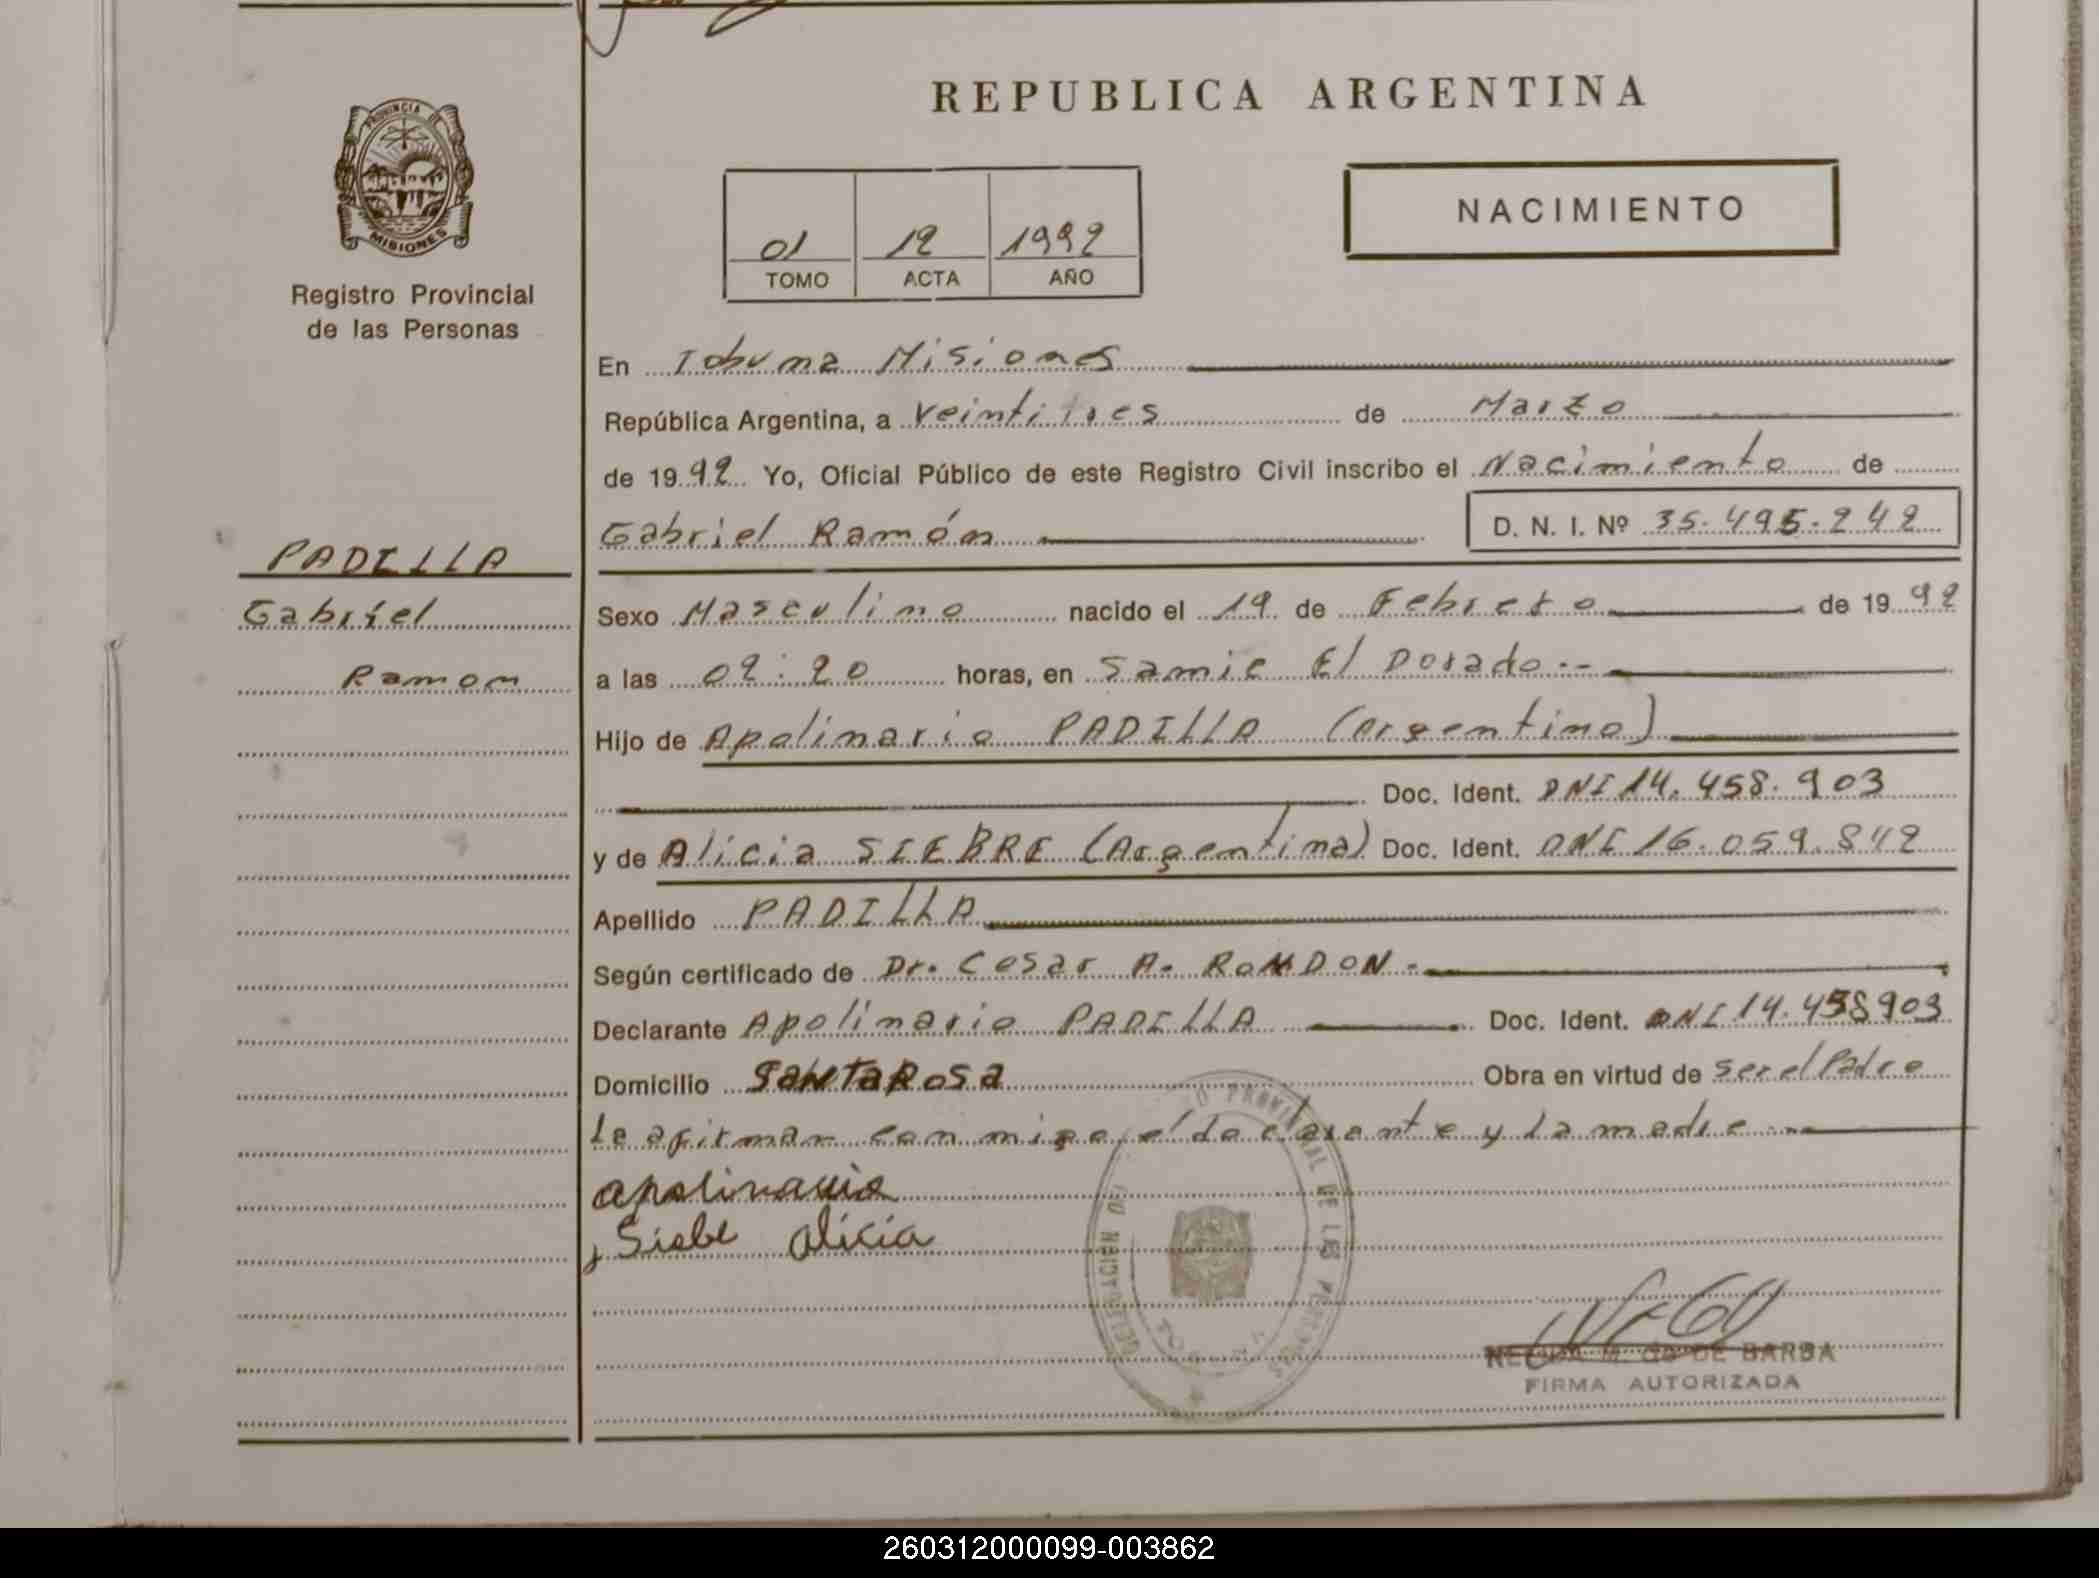 REPUBLICA ARGENTINA
PROVINCIA DE
MISIONES
Registro Provincial
de las Personas
01 12 1992
TOMO ACTA AÑO
NACIMIENTO
En Tobuna Misiones
República Argentina, a Veintitres de Marzo
de 1992 Yo, Oficial Público de este Registro Civil inscribo el Nacimiento de
Gabriel Ramón D. N. I. Nº 35.495.242
PADILLA
Gabriel
Ramon
Sexo Masculino nacido el 19 de Febrero de 1992
a las 02:20 horas, en Samic El Dorado.-
Hijo de Apolinario PADILLA (Argentino)
Doc. Ident. DNI 14.458.903
y de Alicia SIEBRE (Argentina) Doc. Ident. DNI 16.059.842
Apellido PADILLA
Según certificado de Dr. Cesar A. RONDON.-
Declarante Apolinario PADILLA Doc. Ident. DNI 14.458903
Domicilio SANTA ROSA Obra en virtud de ser el Padre
Le afirman con migo, el declarante y la madre
apolinario
Siebe alicia
DELEGACION DEL REGISTRO PROVINCIAL DE LAS PERSONAS
DE BARBA
FIRMA AUTORIZADA
260312000099-003862